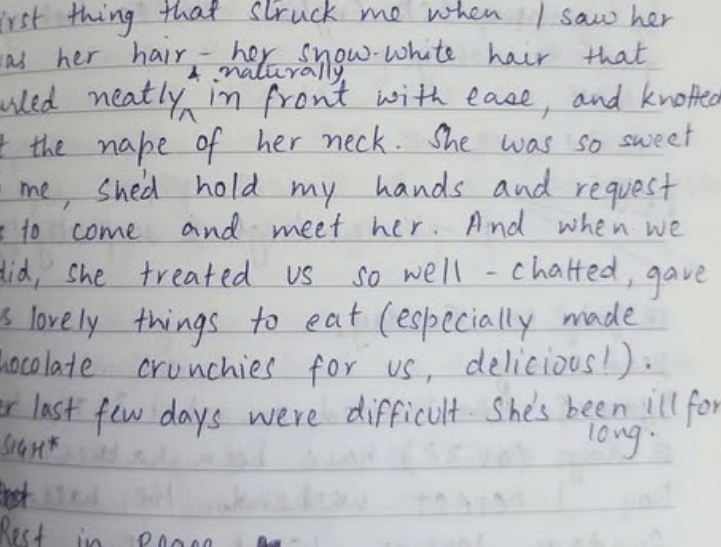 irst thing that struck me when I saw her
as her hair - her snow-white hair that
& naturally
urled neatly ^ in front with ease, and knotted
t the nape of her neck. She was so sweet
me, she'd hold my hands and request
s to come and meet her. And when we
did, she treated us so well - chatted, gave
s lovely things to eat (especially made
hocolate crunchies for us, delicious!).
er last few days were difficult. She's been ill for
long.
SIGH*
Rest in peace